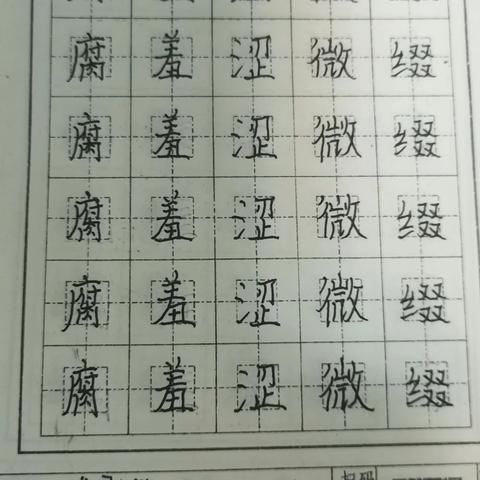 腐 羞 涩 微 缀
腐 羞 涩 微 缀
腐 羞 涩 微 缀
腐 羞 涩 微 缀
腐 羞 涩 微 缀